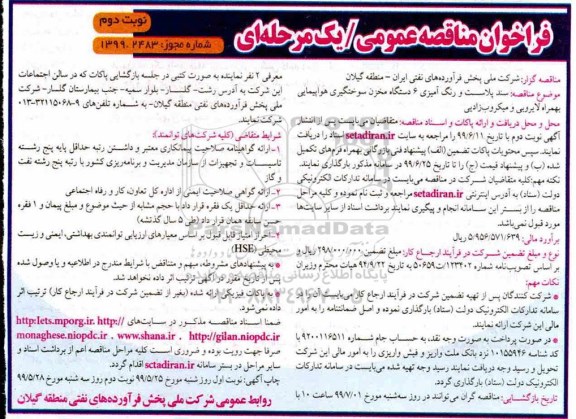 نوبت دوم
شماره مجوز: ۱۳۹۹.۲۴۸۳
فراخوان مناقصه عمومی/یک مرحله‌ای
مناقصه گزار: شرکت ملی پخش فرآورده‌های نفتی ایران - منطقه گیلان
موضوع مناقصه: سند پلاست و رنگ آمیزی ۶ دستگاه مخزن سوختگیری هواپیمایی
بهمراه لایروبی و میکروب‌زدایی
محل و محل دریافت و ارائه پاکات و اسناد مناقصه: متقاضیان می‌بایست پس از انتشار
آگهی نوبت دوم با تاریخ ۹۹/۶/۱۱ را مراجعه به سایت setadiran.ir اسناد را دریافت
نمایند. سپس محتویات پاکات تضمین (الف) پیشنهاد فنی بازرگانی بهمراه فرم‌های تکمیل
شده (ب) و پیشنهاد قیمت (ج) را تا تاریخ ۹۹/۶/۲۵ در سامانه مذکور بارگذاری نمایند.
نکته مهم: کلیه متقاضیان شرکت در مناقصه می‌بایست در سامانه تدارکات الکترونیکی
دولت (ستاد) به آدرس اینترنتی setadiran.ir مراجعه و ثبت نام نموده و کلیه مراحل
مناقصه را از بستر این سامانه انجام و پیگیری نمایند برداشت اسناد از سایر سایت‌ها
مورد قبول نمی‌باشد.
برآورد مالی: ۵/۹۵۶/۵۷۱/۶۳۹ ریال
نوع و مبلغ تضمین شرکت در فرآیند ارجاع کار: مبلغ تضمین ۲۹۸/۰۰۰/۰۰۰ ریال و
بر اساس تصویب‌نامه شماره ۱۲۳۴۰۲/ت۵۰۶۵۹ه به تاریخ ۹۴/۹/۲۲ هیات محترم وزیران
نکات مهم:
شرکت کنندگان پس از تهیه تضمین شرکت در فرآیند ارجاع کار می‌بایست آن را در
سامانه تدارکات الکترونیک دولت (ستاد) بارگذاری نموده و اصل ضمانتنامه را به امور
مالی این شرکت ارائه نمایند.
در صورت پرداخت به صورت وجه نقد، به حساب جام شماره ۹۲۰۰۱۱۶۵۱۱ با
کد شناسه ۱۰۱۵۵۹۴۶ نزد بانک ملت واریز و فیش واریزی را به امور مالی این شرکت
تحویل و رسید وجه دریافت نمایند رسید وجه تهیه شده می‌بایست در سامانه تدارکات
الکترونیک دولت (ستاد) بارگذاری گردد.
تاریخ بازگشایی: مناقصه گران می‌توانند در روز سه‌شنبه مورخ ۹۹/۷/۰۱ ساعت ۱۰ با
معرفی ۲ نفر نماینده به صورت کتبی در جلسه بازگشایی پاکات که در سالن اجتماعات
این شرکت به آدرس رشت- گلسار- بلوار سمیه- جنب بیمارستان گلسار- شرکت
ملی پخش فرآورده‌های نفتی منطقه گیلان- به شماره تلفن‌های ۹-۳۲۱۱۵۰۶۸-۰۱۳
شرکت نمایند.
شرایط متقاضی (کلیه شرکت‌های توانمند):
۱-ارائه گواهینامه صلاحیت پیمانکاری معتبر و داشتن رتبه حداقل پایه پنج رشته
تاسیسات و تجهیزات از سازمان مدیریت و برنامه‌ریزی کشور یا رتبه پنج رشته نفت
و گاز
۲-ارائه گواهی صلاحیت ایمنی از اداره کل تعاون کار و رفاه اجتماعی
۳-ارائه حداقل یک فقره قرار داد با حجم مشابه از حیث موضوع و مبلغ پیمان و ۱ فقره
حسن سابقه همان قرار داد (طی ۵ سال گذشته)
۴-کسب امتیاز قابل قبول بر اساس معیارهای ارزیابی توانمندی بهداشتی، ایمنی و زیست
محیطی (HSE)
به پیشنهادهای مشروطه، مبهم و متناقض با شرایط مندرج در اطلاعیه و یا وصول شده
پس از تاریخ مقرر در آگهی ترتیب اثر داده نخواهد شد.
به پاکات فیزیکی ارائه شده (بغیر از تضمین شرکت در فرآیند ارجاع کار) ترتیب اثر
داده نمی‌شود.
ضمنا اسناد مناقصه مذکور در سایت‌های http://iets.mporg.ir. http://
monaghese.niopdc.ir ، www.shana.ir ، http://gilan.niopdc.ir
صرفا جهت رویت بوده و ضروری است کلیه مراحل مناقصه اعم از برداشت اسناد و
سایر مراحل در بستر سامانه setadiran.ir اقدام گردد.
چاپ آگهی: نوبت اول روز شنبه مورخ ۹۹/۵/۲۵ نوبت دوم روز سه شنبه مورخ ۹۹/۵/۲۸
روابط عمومی شرکت ملی پخش فرآورده‌های نفتی منطقه گیلان